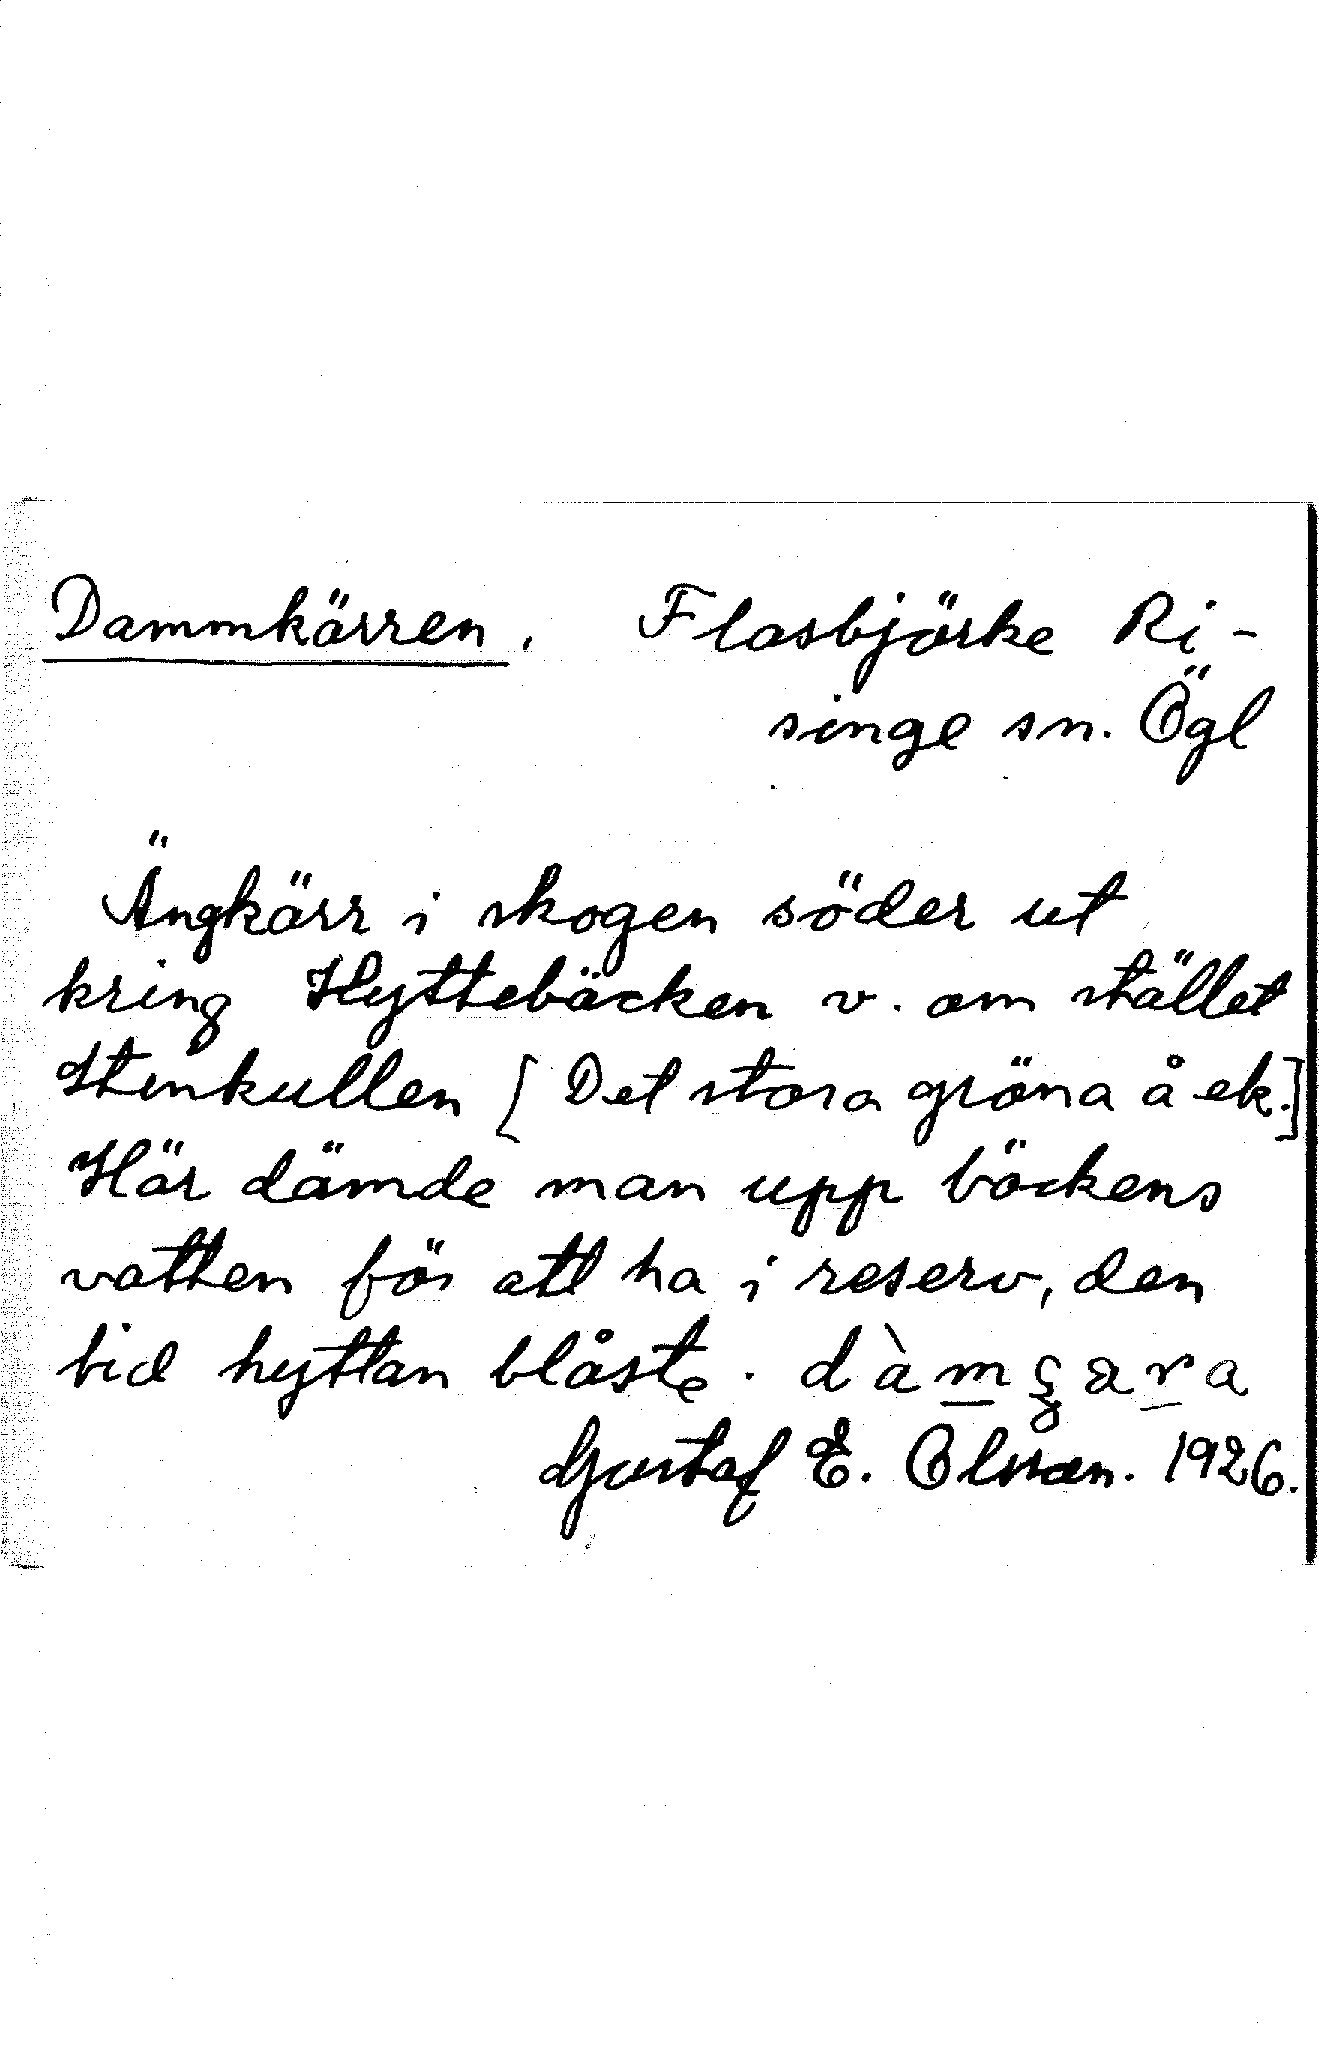 Dammkärren. Flasbjörke Ri-
singe sn. Ögl
Ängkärr i skogen söder ut
kring Hyttebäcken v. om stället
Stenkullen [Det stora gröna å ek.]
Här dämde man upp bäckens
vatten för att ha i reserv, den
tid hyttan blåste.
Gustaf E. Olsson. 1926.